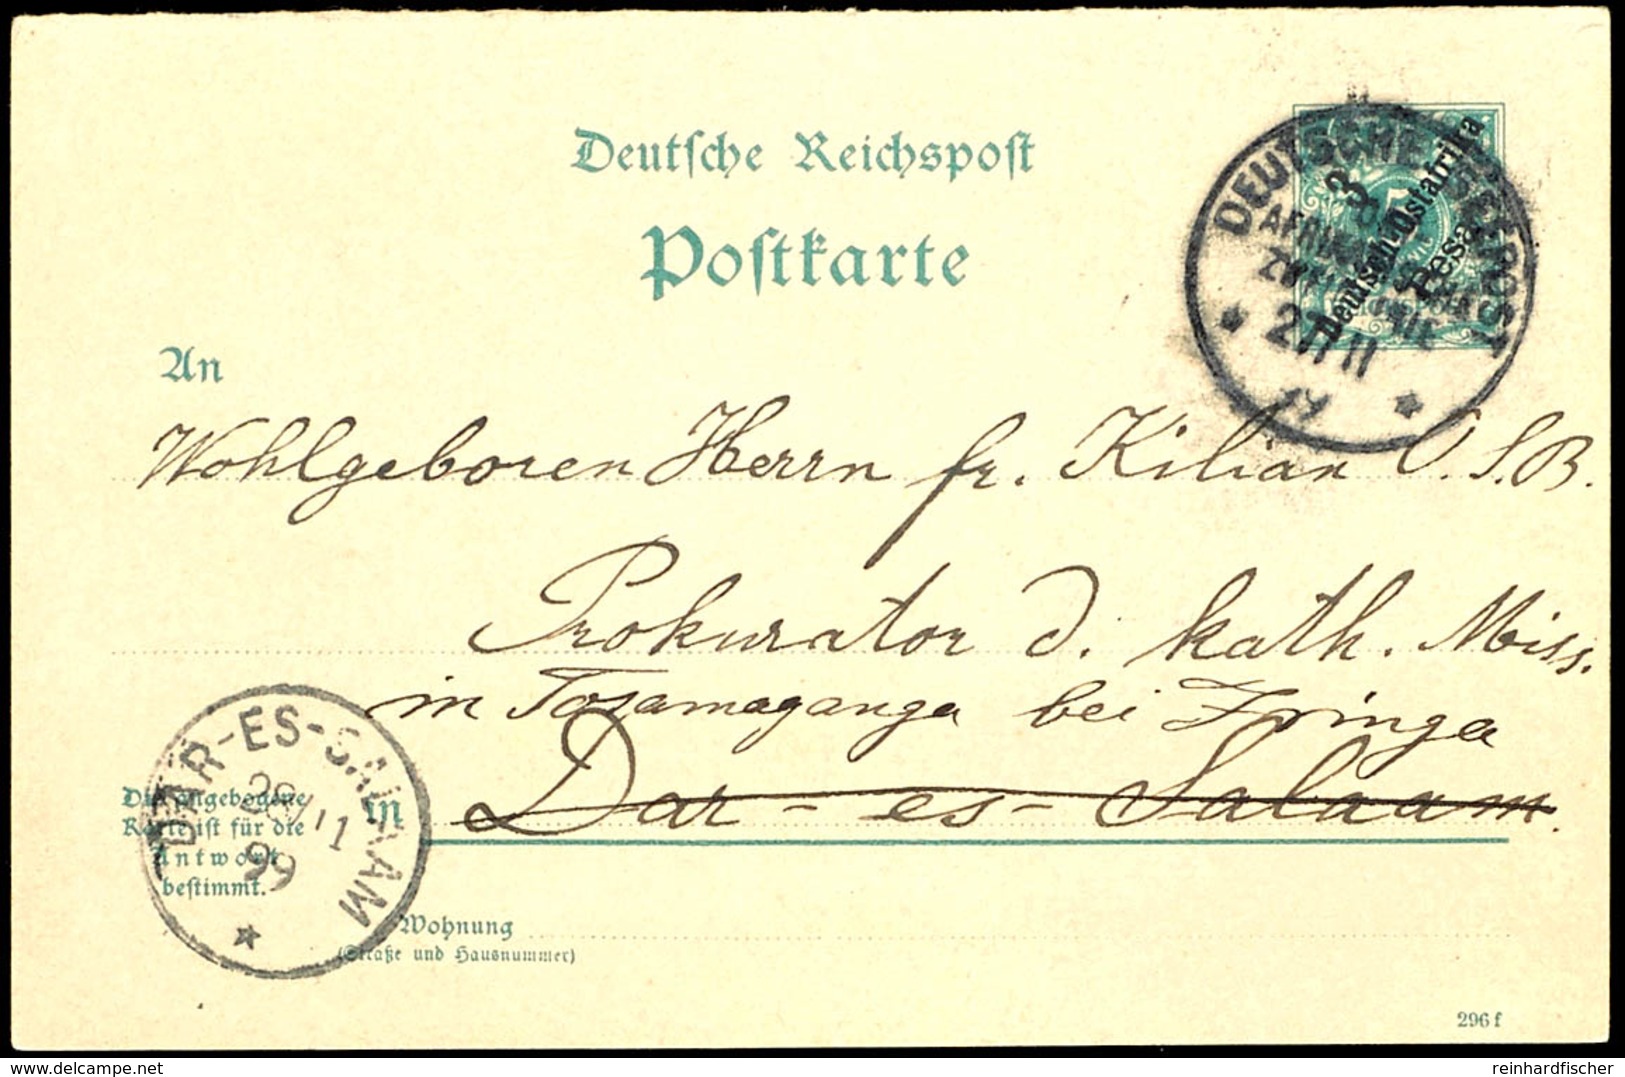 Deutsche Reichspost
Postkarte
DEUTSCHE SEEPOST
ZWEIGLINIE
3
Deutsch-Ostafrika
Pesa
An
Wohlgeboren Herrn fr. Kilian O. S. B.
Prokurator d. kath. Miss.
in Tosamaganga bei Iringa
in Dar-es-Salaam.
DAR-ES-SALAAM
99
Die angebogene
Karte ist für die
Antwort
bestimmt.
Wohnung
(Straße und Hausnummer)
296 f
delcampe.net
reinhardfischer